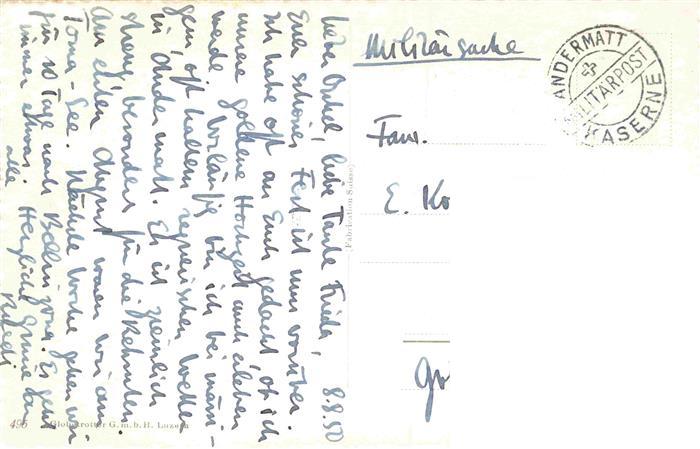 8.8.50
Lieber Onkel, liebe Tante Frieda,
Euer schönes Fest ist nun vorüber.
Ich habe oft an Euch gedacht, ob ich
unsere goldene Hochzeit auch erleben
werde. Vorläufig bin ich bei mässi-
gem, oft kaltem regnerischen Wetter
in Andermatt. Es ist ziemlich
streng, besonders für die Rekruten.
Am ersten August waren wir am
Toma-See. Nächste Woche gehen wir
für 10 Tage nach Bellinzona. Es geht
immer etwas. Herzliche Grüsse an
alle Ruedi
Militärsache
ANDERMATT
MILITÄRPOST
KASERNE
Fam.
E. Ko
Gr
Fabrication Suisse
495 Globetrotter G.m.b.H. Luzern